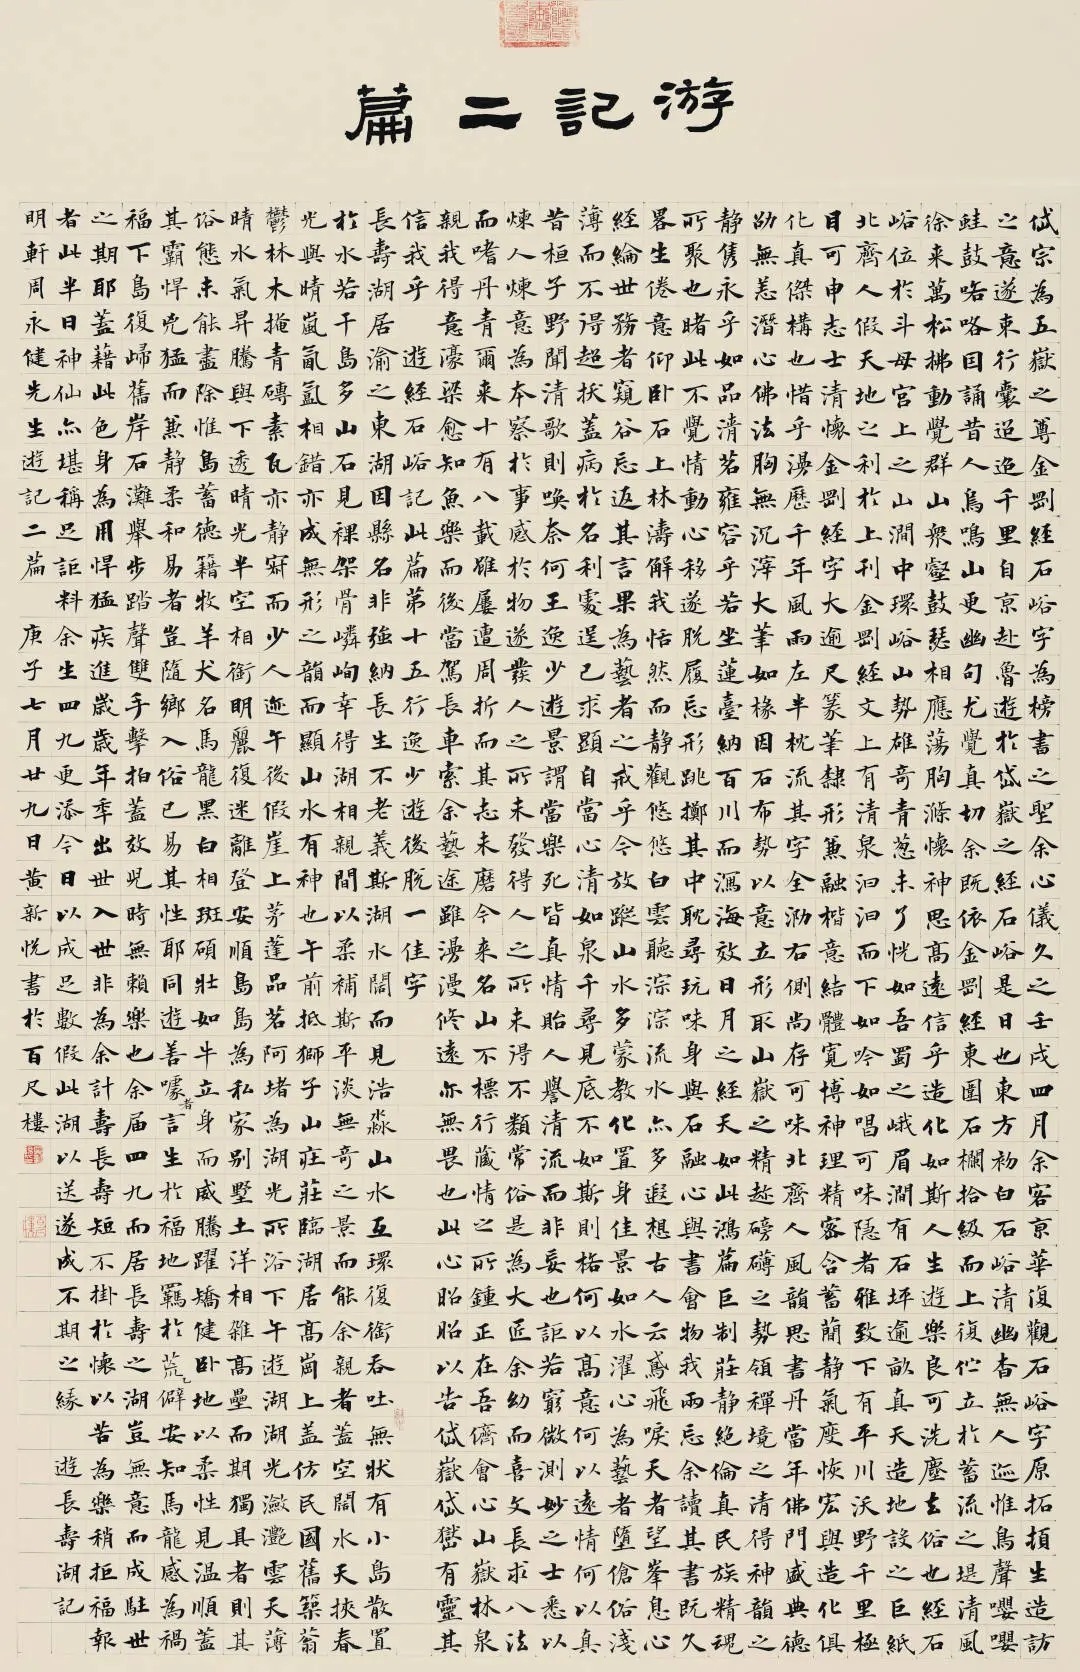 游記二篇
岱宗為五嶽之尊金剛經石峪字為榜書之聖余心儀久之壬戌四月余客京華復觀石峪字原拓頓生造訪
之意遂束行囊迢迢千里自京赴魯遊於岱嶽之經石峪是日也東方初白石峪清幽杳無人迹惟鳥聲嚶嚶
鮭鼓咯咯因誦昔人鳥鳴山更幽句尤覺真切余既依金剛經東圍石欄拾級而上復佇立於蓄流之堤清風
徐來萬松拂動覺群山衆壑鼓瑟相應蕩胸滌懷神思高遠信乎造化如斯人生遊樂良可洗塵去俗也經石
峪位於斗母宮上之山澗中環峪山勢雄奇青葱未了恍如吾蜀之峨眉澗有石坪逾畝真天造地設之巨紙
北齊人假天地之利於上刊金剛經文上有清泉汩汩而下如吟如唱可味隱者雅致下有平川沃野千里極
目可申志士清懷金剛經字大逾尺篆筆隸形兼融楷意結體寬博神理精密含蓄簡靜氣度恢宏與造化俱
化真傑構也惜乎漫歷千年風雨左半枕流其字全泐右側尚存可味北齊人風韻思書丹當年佛門盛典德
劭無恙潛心佛法胸無沉滓大筆如椽因石布勢以意立形取山嶽之精趂磅礴之勢領禪境之清得神韻之
靜雋永乎如品清茗雍容乎若坐蓮臺納百川而瀉海效日月之經天如此鴻篇巨制莊靜絕倫真民族精魂
所聚也睹此不覺情動心移遂脫履忘形跳擲其中耽尋玩味身與石融心與書會物我兩忘余讀其書既久
畧生倦意仰卧石上林濤解我恬然而靜觀悠悠白雲聽淙淙流水亦多遐想古人云鳶飛唳天者望峯息心
經綸世務者窺谷忘返其言果為藝者之戒乎今放蹤山水多蒙教化置身佳景如水濯心為藝者墮傖俗淺
薄而不得超狀蓋病於名利逞己求顕自當心清如泉千尋見底不如斯則格何以高意何以遠情何以真
昔桓子野聞清歌則喚奈何王逸少遊景謂當樂死皆真情貽人譽清流而非妄也詎若窮微測妙之士悉以
煉人煉意為本察於事感於物遂發人之所未發得人之所未得不類常俗是為大匠余幼而喜文長求八法
而嗜丹青爾來十有八載雖屢遭周折而其志未磨今來名山不標行藏情之所鍾正在吾儕會心山嶽林泉
親我得意濠梁愈知魚樂而後當駕長車索余藝途雖漫漫修遠亦無畏也此心昭昭以告岱嶽岱嶽有靈其
信我乎 遊經石峪記此篇第十五行逸少遊後脫一佳字
長壽湖居渝之東湖因縣名非強納長生不老義斯湖水闊而見浩淼山水互環復銜吞吐無狀有小島散置
於水若干島多山石見裸架骨嶙峋幸得湖相親間以柔補斯平淡無奇之景而能余親者蓋空闊水天挾春
光與晴嵐氤氳相錯亦成無形之韻而顯山水有神也午前抵獅子山莊莊臨湖居高崗上蓋仿民國舊築蓊
鬱林木掩青磚素瓦亦靜而少人迹午後假崖上茅蓬品茗阿堵為湖光所浴下午遊湖湖光瀲灧雲天薄
晴水氣昇騰與下透晴光半空相銜明麗復迷離登安順島島為私家別墅土洋相雜高壘而期獨具者則其
俗態未能盡除惟島蓄德籍牧羊犬名馬龍黑白相斑碩壯如牛立身而威騰躍矯健卧地以柔性見温順蓋
其霸悍兇猛而兼靜柔和易者豈隨鄉入俗已易其性耶同遊善噱者言生於福地羈於荒僻安知馬龍感為禍
福下島復歸舊岸石灘舉步踏聲雙手擊拍蓋效兒時無賴樂也余届四九而居長壽之湖豈無意而成駐世
之期耶蓋藉此色身為用悍猛疾進歲歲年季出世入世非為余計壽長壽短不掛於懷以苦為樂稍拒福報
者此半日神仙亦堪稱足詎料余生四九更添今日以成足數假此湖以送遂成不期之緣 遊長壽湖記
明軒周永健先生遊記二篇 庚子七月廿九日黃新悅書於百尺樓